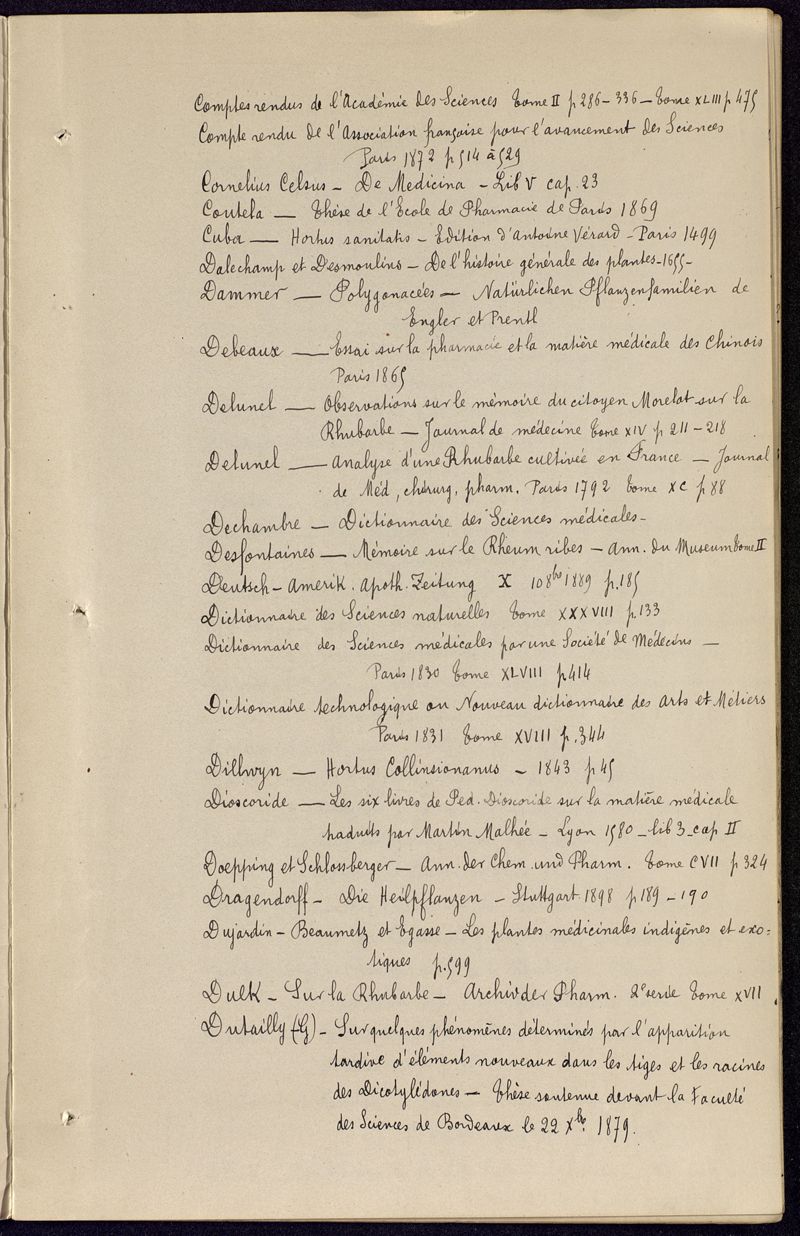 Comptes rendus de l'Académie des Sciences Tome II p 286-336 — Tome XLIII p 475
Compte rendu de l'Association française pour l'avancement des Sciences
Paris 1872 p 514 à 529
Cornelius Celsus — De Medicina — Lib V cap. 23
Coutela — Thèse de l'Ecole de Pharmacie de Paris 1869
Cuba — Hortus sanitatis — Edition d'Antoine Vérard — Paris 1499
Dalechamp et Desmoulins — De l'histoire générale des plantes — 1655 —
Dammer — Polygonacées — Natürlichen Pflanzenfamilien de
Engler et Prentl
Debeaux — Essai sur la pharmacie et la matière médicale des Chinois
Paris 1865
Delunel — Observations sur le mémoire du citoyen Morelot sur la
Rhubarbe — Journal de médecine Tome XIV p 211-218
Delunel — Analyse d'une Rhubarbe cultivée en France — Journal
de Méd, chirurg, pharm. Paris 1792 Tome XC p 88
Dechambre — Dictionnaire des Sciences médicales —
Desfontaines — Mémoire sur le Rheum ribes — Ann. du Museum Tome II
Deutsch-Amerik. Apoth. Zeitung X 1889 p. 185
Dictionnaire des Sciences naturelles Tome XXXVIII p. 133
Dictionnaire des Sciences médicales par une Société de Médecins —
Paris 1830 Tome XLVIII p 414
Dictionnaire technologique ou Nouveau dictionnaire des Arts et Métiers
Paris 1831 Tome XVIII p. 344
Dillwyn — Hortus Collinsionanus — 1843 p 45
Dioscoride — Les six livres de Ped. Dioscoride sur la matière médicale
traduits par Martin Malhée — Lyon 1580 — lib 3 — cap II
Doepping et Schlossberger — Ann. der Chem. und Pharm. Tome CVII p 324
Dragendorff — Die Heilpflanzen — Stuttgart 1898 p 189-190
Dujardin-Beaumetz et Egasse — Les plantes médicinales indigènes et exo-
tiques p. 599
Dulk — Sur la Rhubarbe — Archiv der Pharm. 2e serie Tome XVII
Dutailly (G) — Sur quelques phénomènes déterminés par l'apparition
tardive d'éléments nouveaux dans les tiges et les racines
des Dicotylédones — Thèse soutenue devant la Faculté
des Sciences de Bordeaux le 22 Xbre 1879.